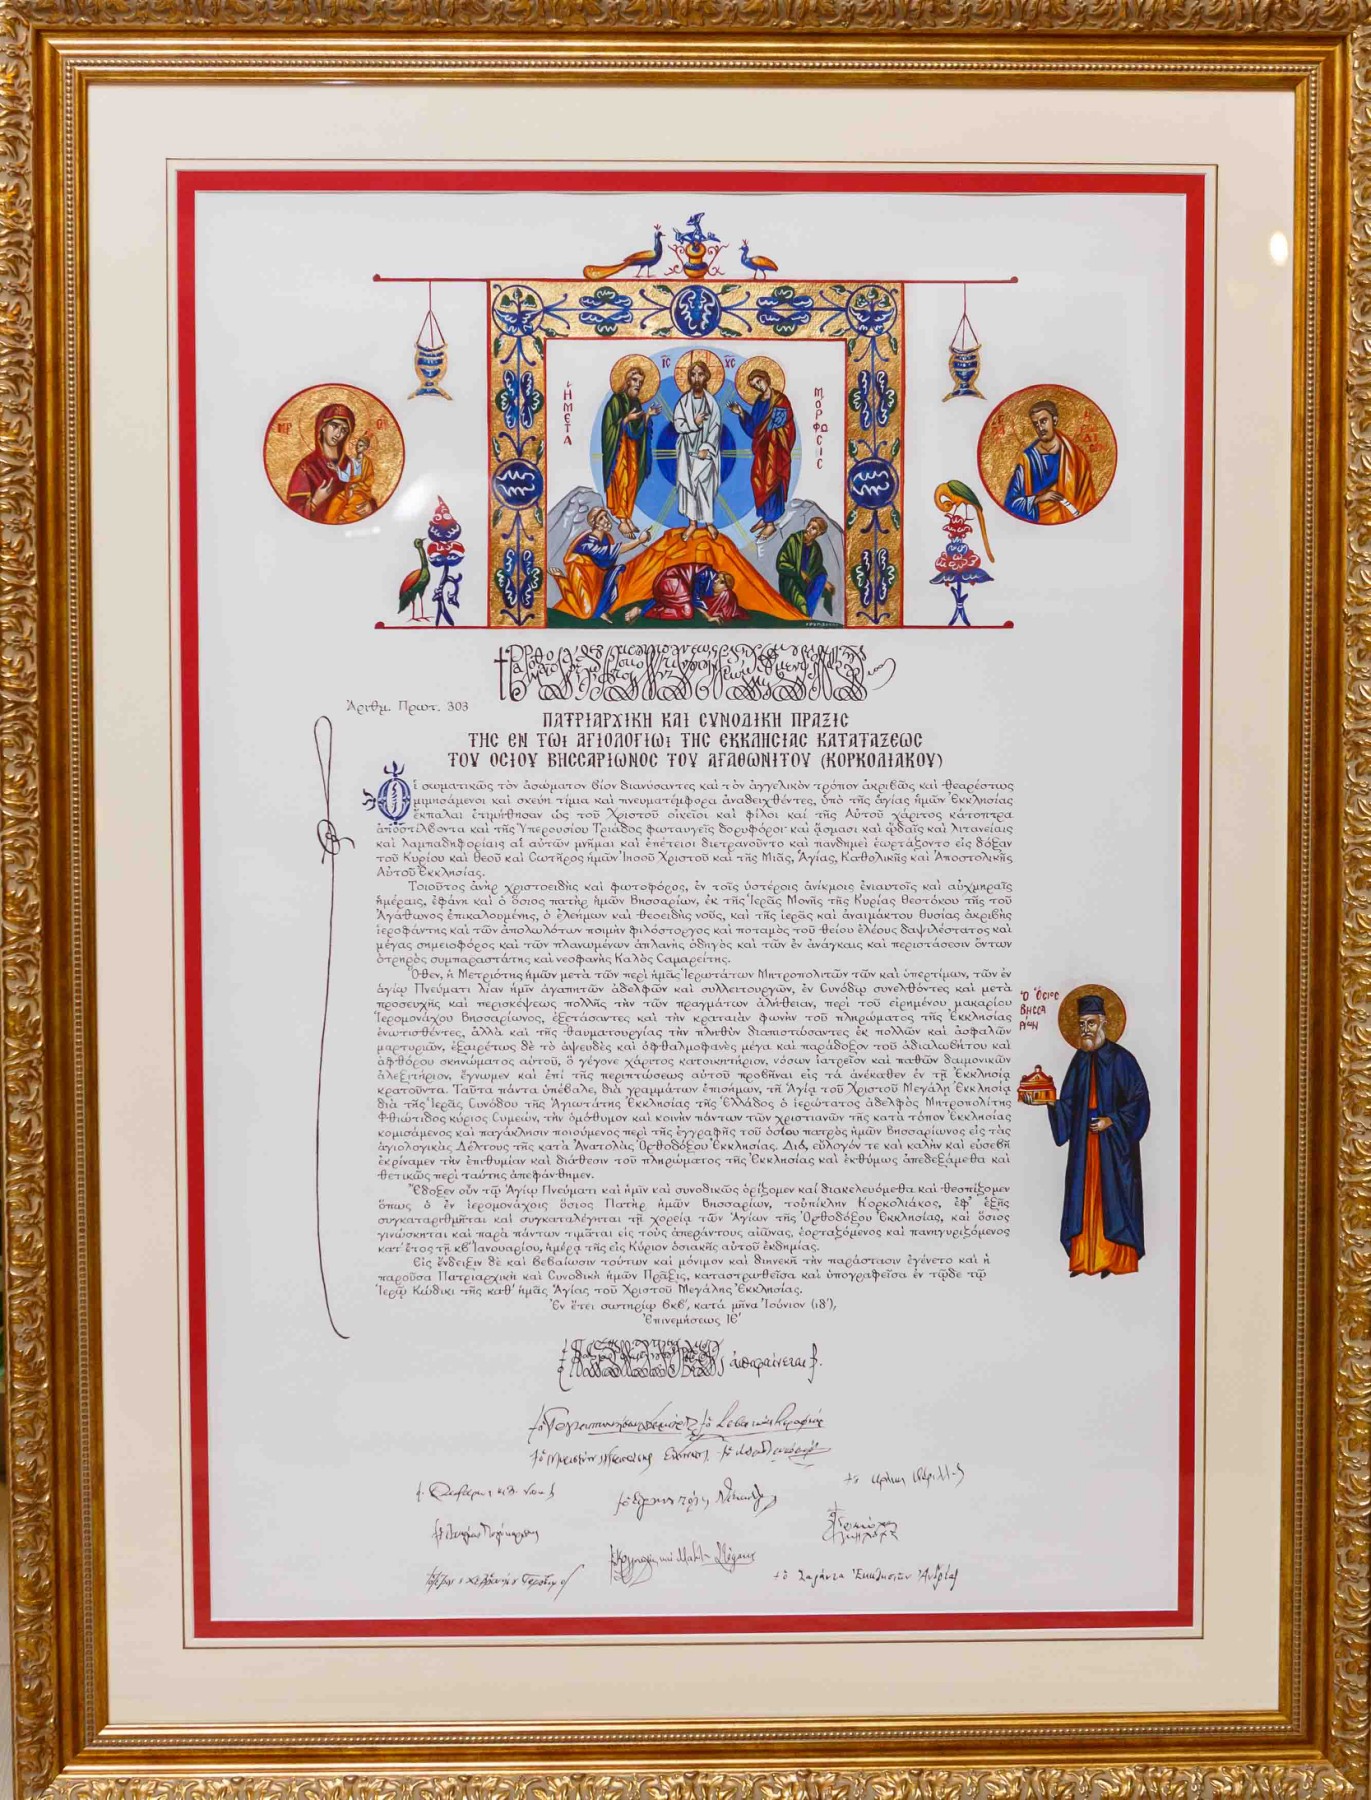 ΜΡ ΘΥ
Ἡ ΜΕΤΑ
ΜΟΡΦΩCΙC
ΙC ΧC
Ἀριθμ. Πρωτ. 303
ΠΑΤΡΙΑΡΧΙΚΗ ΚΑΙ CΥΝΟΔΙΚΗ ΠΡΑΞΙC
ΤΗC ΕΝ ΤΩΙ ΑΓΙΟΛΟΓΙΩΙ ΤΗC ΕΚΚΛΗCΙΑC ΚΑΤΑΤΑΞΕΩC
ΤΟΥ ΟCΙΟΥ ΒΗCCΑΡΙΩΝΟC ΤΟΥ ΑΓΑΘΩΝΙΤΟΥ (ΚΟΡΚΟΛΙΑΚΟΥ)
Οἱ σωματικῶς τὸν ἀσώματον βίον διανύσαντες καὶ τὸν ἀγγελικὸν τρόπον ἀκριβῶς καὶ θεαρέστως
μιμησάμενοι καὶ σκεύη τίμια καὶ πνευματέμφορα ἀναδειχθέντες, ὑπὸ τῆς ἁγίας ἡμῶν Ἐκκλησίας
ἔκπαλαι ἐτιμήθησαν ὡς τοῦ Χριστοῦ οἰκεῖοι καὶ φίλοι καὶ τῆς Αὐτοῦ χάριτος κάτοπτρα
ἀποστίλβοντα καὶ τῆς Ὑπερουσίου Τριάδος φωταυγεῖς δορυφόροι καὶ ᾄσμασι καὶ ᾠδαῖς καὶ λιτανείαις
καὶ λαμπαδηφορίαις αἱ αὐτῶν μνῆμαι καὶ ἐπέτειοι διετρανοῦντο καὶ πανδημεὶ ἑωρτάζοντο εἰς δόξαν
τοῦ Κυρίου καὶ Θεοῦ καὶ Σωτῆρος ἡμῶν Ἰησοῦ Χριστοῦ καὶ τῆς Μιᾶς, Ἁγίας, Καθολικῆς καὶ Ἀποστολικῆς
Αὐτοῦ Ἐκκλησίας.
Τοιοῦτος ἀνὴρ χριστοειδὴς καὶ φωτοφόρος, ἐν τοῖς ὑστέροις ἀνίκμοις ἐνιαυτοῖς καὶ αὐχμηραῖς
ἡμέραις, ἐφάνη καὶ ὁ ὅσιος πατὴρ ἡμῶν Βησσαρίων, ἐκ τῆς Ἱερᾶς Μονῆς τῆς Κυρίας Θεοτόκου τῆς τοῦ
Ἀγάθωνος ἐπικαλουμένης, ὁ ἐλεήμων καὶ θεοειδὴς νοῦς, καὶ τῆς ἱερᾶς καὶ ἀναιμάκτου θυσίας ἀκριβὴς
ἱεροφάντης καὶ τῶν ἀπολωλότων ποιμὴν φιλόστοργος καὶ ποταμὸς τοῦ θείου ἐλέους δαψιλέστατος καὶ
μέγας σημειοφόρος καὶ τῶν πλανωμένων ἀπλανὴς ὁδηγὸς καὶ τῶν ἐν ἀνάγκαις καὶ περιστάσεσιν ὄντων
ὀτρηρὸς συμπαραστάτης καὶ νεοφανὴς Καλὸς Σαμαρείτης.
Ὅθεν, ἡ Μετριότης ἡμῶν μετὰ τῶν περὶ ἡμᾶς Ἱερωτάτων Μητροπολιτῶν τῶν καὶ ὑπερτίμων, τῶν ἐν
ἁγίῳ Πνεύματι λίαν ἡμῖν ἀγαπητῶν ἀδελφῶν καὶ συλλειτουργῶν, ἐν Συνόδῳ συνελθόντες καὶ μετὰ
προσευχῆς καὶ περισκέψεως πολλῆς τὴν τῶν πραγμάτων ἀλήθειαν, περὶ τοῦ εἰρημένου μακαρίου
Ἱερομονάχου Βησσαρίωνος, ἐξετάσαντες καὶ τὴν κραταιὰν φωνὴν τοῦ πληρώματος τῆς Ἐκκλησίας
ἐνωτισθέντες, ἀλλὰ καὶ τῆς θαυματουργίας τὴν πληθὺν διαπιστώσαντες ἐκ πολλῶν καὶ ἀσφαλῶν
μαρτυριῶν, ἐξαιρέτως δὲ τὸ ἀψευδὲς καὶ ὀφθαλμοφανὲς μέγα καὶ παράδοξον τοῦ ἀδιαλωβήτου καὶ
ἀφθόρου σκηνώματος αὐτοῦ, ὃ γέγονε χάριτος κατοικητήριον, νόσων ἰατρεῖον καὶ παθῶν δαιμονικῶν
ἀλεξιτήριον, ἔγνωμεν καὶ ἐπὶ τῆς περιπτώσεως αὐτοῦ προβῆναι εἰς τὰ ἀνέκαθεν ἐν τῇ Ἐκκλησίᾳ
κρατοῦντα. Ταῦτα πάντα ὑπέβαλε, διὰ γραμμάτων ἐπισήμων, τῇ Ἁγίᾳ τοῦ Χριστοῦ Μεγάλῃ Ἐκκλησίᾳ
διὰ τῆς Ἱερᾶς Συνόδου τῆς Ἁγιωτάτης Ἐκκλησίας τῆς Ἑλλάδος ὁ ἱερώτατος ἀδελφὸς Μητροπολίτης
Φθιώτιδος κύριος Συμεών, τὴν ὁμόθυμον καὶ κοινὴν πάντων τῶν χριστιανῶν τῆς κατὰ τόπον Ἐκκλησίας
κομισάμενος καὶ παράκλησιν ποιούμενος περὶ τῆς ἐγγραφῆς τοῦ ὁσίου πατρὸς ἡμῶν Βησσαρίωνος εἰς τὰς
ἁγιολογικὰς Δέλτους τῆς κατὰ Ἀνατολὰς Ὀρθοδόξου Ἐκκλησίας. Διό, εὔλογόν τε καὶ καλὴν καὶ εὐσεβῆ
ἐκρίναμεν τὴν ἐπιθυμίαν καὶ διάθεσιν τοῦ πληρώματος τῆς Ἐκκλησίας καὶ ἐκθύμως ἀπεδεξάμεθα καὶ
θετικῶς περὶ ταύτης ἀπεφάνθημεν.
Ἔδοξεν οὖν τῷ Ἁγίῳ Πνεύματι καὶ ἡμῖν καὶ συνοδικῶς ὁρίζομεν καὶ διακελευόμεθα καὶ θεσπίζομεν
ὅπως ὁ ἐν ἱερομονάχοις ὅσιος Πατὴρ ἡμῶν Βησσαρίων, τοὐπίκλην Κορκολιάκος, ἐφ' ἑξῆς
συγκαταριθμῆται καὶ συγκαταλέγηται τῇ χορείᾳ τῶν Ἁγίων τῆς Ὀρθοδόξου Ἐκκλησίας, καὶ ὅσιος
γινώσκηται καὶ παρὰ πάντων τιμᾶται εἰς τοὺς ἀπεράντους αἰῶνας, ἑορταζόμενος καὶ πανηγυριζόμενος
κατ' ἔτος τῇ κβ' Ἰανουαρίου, ἡμέρᾳ τῆς εἰς Κύριον ὁσιακῆς αὐτοῦ ἐκδημίας.
Εἰς ἔνδειξιν δὲ καὶ βεβαίωσιν τούτων καὶ μόνιμον καὶ διηνεκῆ τὴν παράστασιν ἐγένετο καὶ ἡ
παροῦσα Πατριαρχικὴ καὶ Συνοδικὴ ἡμῶν Πρᾶξις, καταστρωθεῖσα καὶ ὑπογραφεῖσα ἐν τῷδε τῷ
Ἱερῷ Κώδικι τῆς καθ' ἡμᾶς Ἁγίας τοῦ Χριστοῦ Μεγάλης Ἐκκλησίας.
Ἐν ἔτει σωτηρίῳ βκβ', κατὰ μῆνα Ἰούνιον (ιδ'),
Ἐπινεμήσεως ΙΕ'
Ὁ ὍCΙΟC
ΒΗCCΑ
ΡΙΩΝ
ἀποφαίνεται